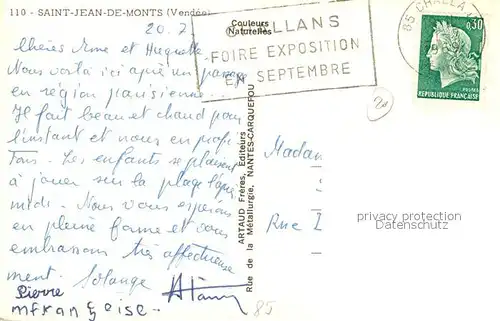 110 - SAINT-JEAN-DE-MONTS (Vendée)
20.7
Chères Anne et Huguette
Nous voilà ici après un passage
en région parisienne...
Il fait beau et chaud pour
l'instant et nous en profi
tons. Les enfants se plaisent
à jouer sur la plage l'après
midi. Nous vous espérons
en pleine forme et vous
embrassons très affectueuse
ment. Solange Alain
Pierre
mfrançoise.
Couleurs
Naturelles
ARTAUD Frères, Editeurs
Rue de la Métallurgie, NANTES-CARQUEFOU
LLANS
FOIRE EXPOSITION
EN SEPTEMBRE
85 CHALLA
0,30
POSTES
REPUBLIQUE FRANÇAISE
Madam
Rue
privacy protection
Datenschutz
85